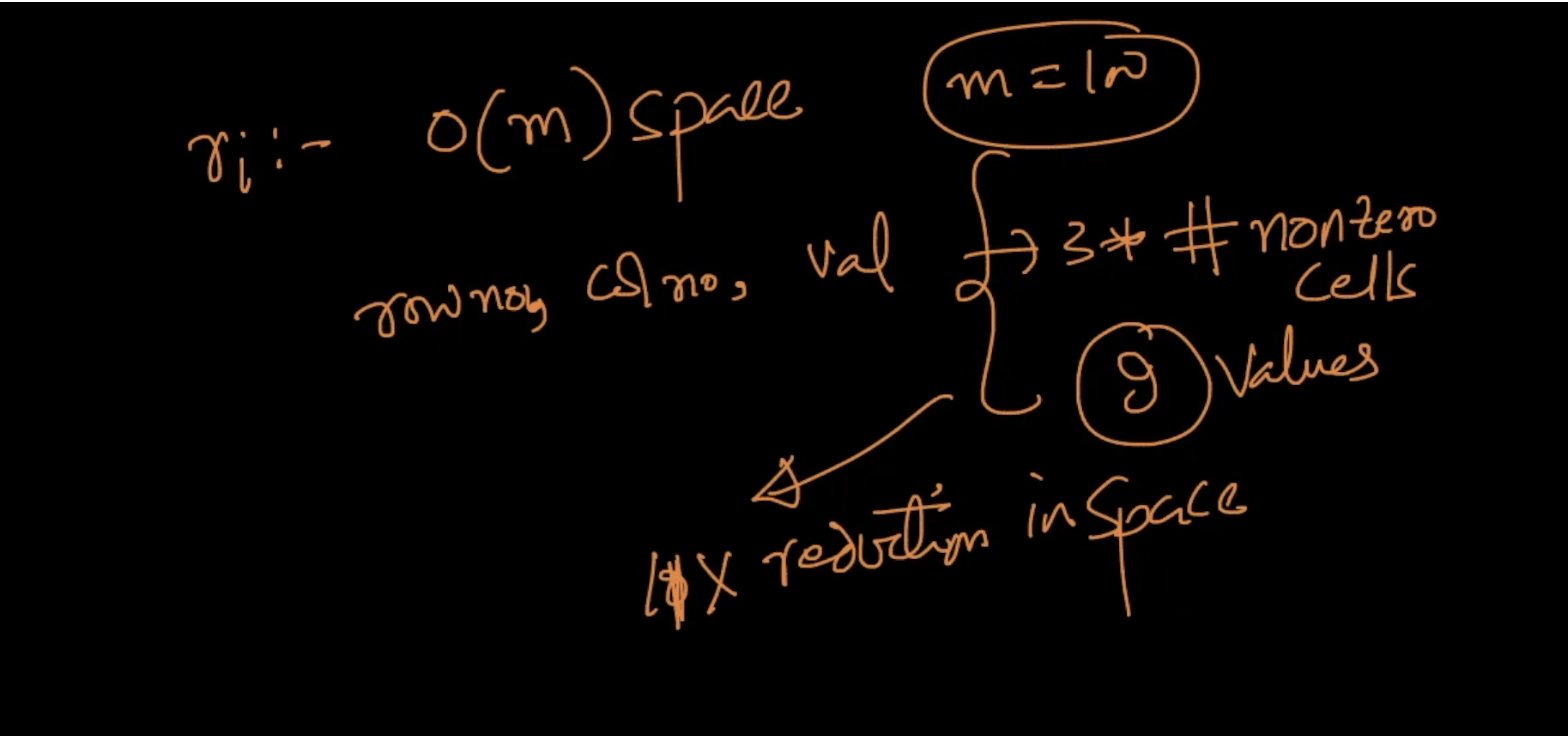 rᵢ :- O(m) space
m = 100
row no, col no, val → 3 * # nonzero
cells
9 values
11X reduction in space